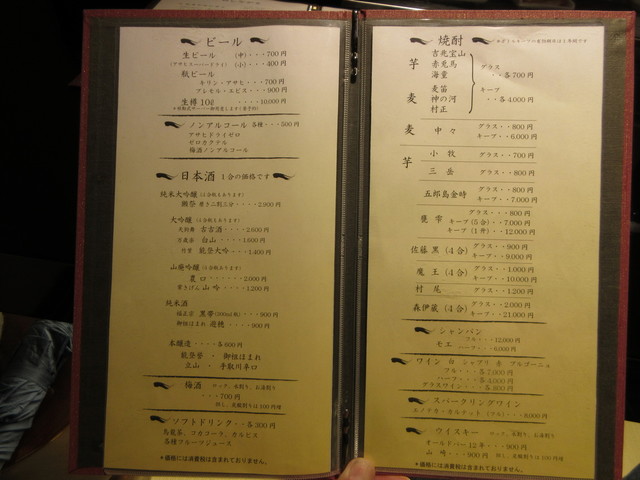 ビール
生ビール (中)・・・700円
(アサヒスーパードライ) (小)・・・400円
瓶ビール
キリン・アサヒ・・・700円
プレモル・エビス・・・900円
生樽 10ℓ ・・・・・10,000円
ノンアルコール 各種・・・500円
アサヒドライゼロ
ゼロカクテル
梅酒ノンアルコール
日本酒 1合の価格です
純米大吟醸
獺祭 磨き二割三分・・・・2,900円
大吟醸
吉吉酒・・・・2,600円
白山・・・・1,600円
能登大吟・・・・1,400円
山廃吟醸
山吟・・・・1,200円
純米酒
黒帯
御祖はまれ
本醸造・・・・各600円
能登誉 ・ 御祖はまれ
立山 ・ 手取川辛口
梅酒 ロック、水割り、お湯割り
・・・700円
但し、炭酸割りは100円増
ソフトドリンク・・各300円
烏龍茶、コカコーラ、カルピス
各種フルーツジュース
＊価格には消費税は含まれておりません。
焼酎
芋
吉兆宝山
赤兎馬
海童
麦
麦笛
神の河
村正
グラス
・・各700円
キープ
・・各4,000円
麦 中々 グラス・・800円
キープ・・6,000円
芋
小牧 グラス・・700円
三岳 グラス・・800円
五郎島金時 グラス・・800円
キープ・・7,000円
甕雫 グラス・・・800円
キープ(5合)・・7,000円
キープ(1升)・・12,000円
佐藤 黒 (4合) グラス・・900円
キープ・・9,000円
魔王 (4合) グラス・・1,000円
キープ・・10,000円
村尾 グラス・・1,200円
森伊蔵 (4合) グラス・・2,000円
キープ・・21,000円
シャンパン
モエ フル・・・12,000円
ハーフ・・・
ワイン 白 シャブリ 赤 ブルゴーニュ
フル・・・各7,000円
ハーフ・・・
グラスワイン・・・各800円
スパークリングワイン
ウイスキー ロック、水割り、お湯割り
オールドパー 12年・・・900円
山崎・・・900円 但し、炭酸割りは100円増
＊価格には消費税は含まれておりません。